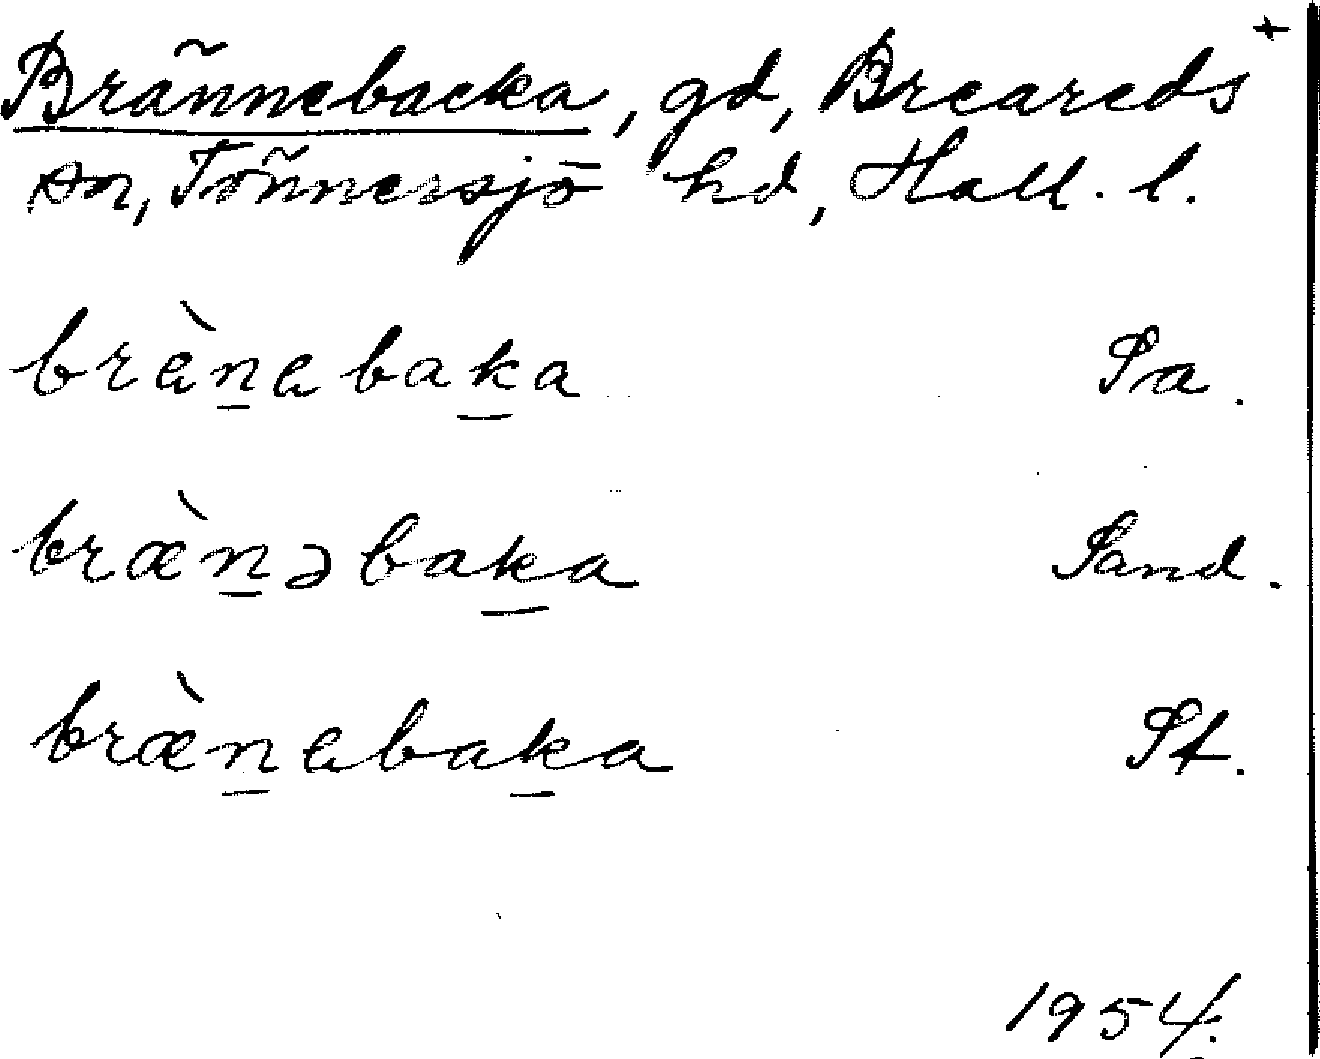 Brännebacka, gd, Breareds +
sn, Tönnersjö hd, Hall. l.
bràn̲abak̲a Sa.
bræ̀n̲əbak̲a Sand.
bræ̀n̲abak̲a St.
1954.